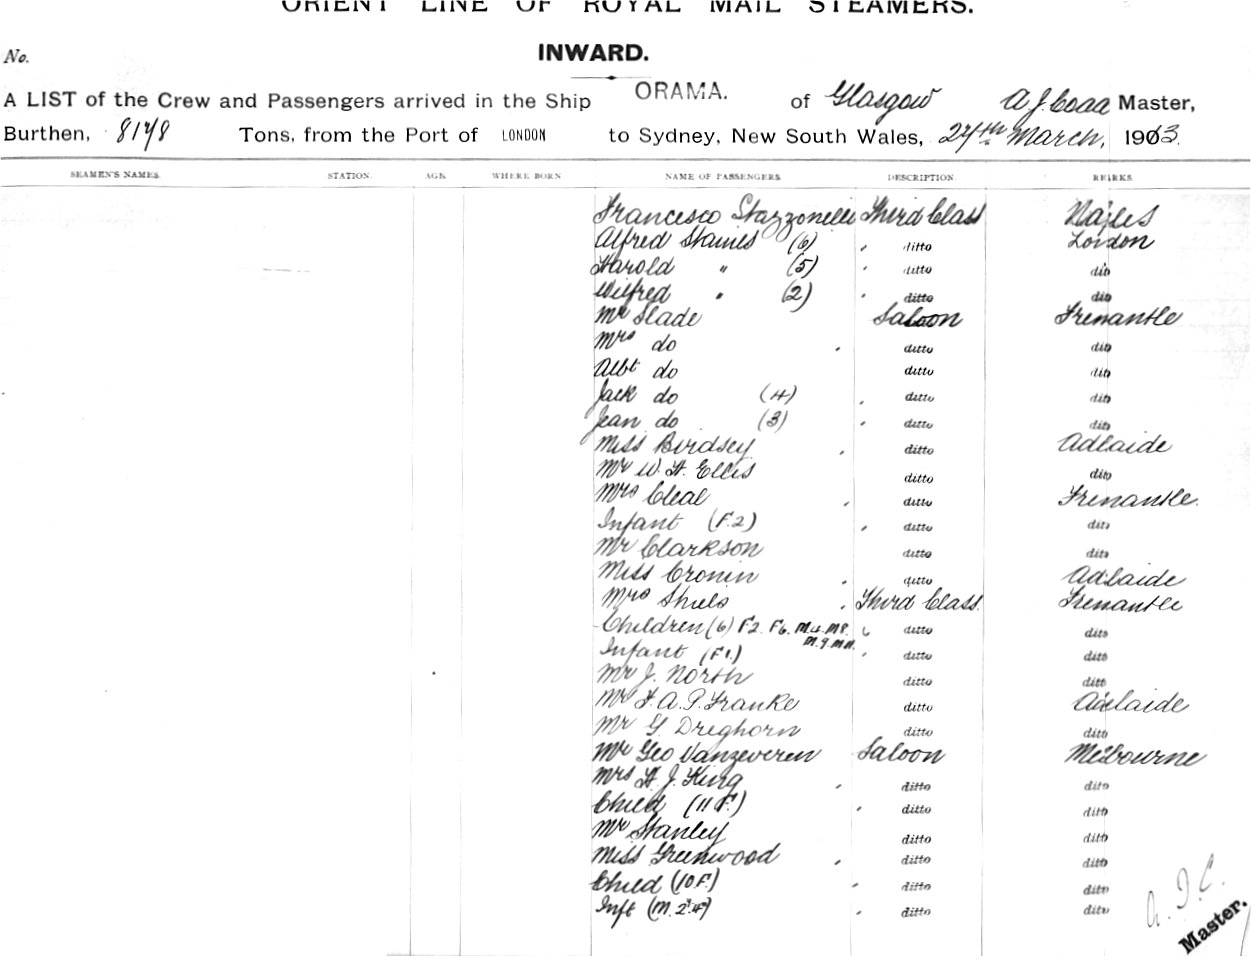 ORIENT LINE OF ROYAL MAIL STEAMERS.
No.
INWARD.
A LIST of the Crew and Passengers arrived in the Ship ORAMA. of Glasgow A. J. Coad Master,
Burthen, 8178 Tons, from the Port of LONDON to Sydney, New South Wales, 27th March, 1913.
SEAMEN'S NAMES. STATION. AGE. WHERE BORN NAME OF PASSENGERS. DESCRIPTION.
Francesco Stazzonelli Third Class Naples
Alfred Staines (6) ditto London
Harold " (5) ditto ditto
Wilfred " (2) ditto ditto
Mr Slade Saloon Fremantle
Mrs do ditto ditto
Albt do ditto ditto
Jack do (4) ditto ditto
Jean do (3) ditto ditto
Miss Birdsey ditto Adelaide
Mr W. H. Ellis ditto ditto
Mrs Cleal ditto Fremantle
Infant (F.2) ditto ditto
Mr Clarkson ditto ditto
Miss Cronin ditto Adelaide
Mrs Shiels Third Class Fremantle
Children (6) F2. F6. M.4. M8. M.9. M11. ditto ditto
Infant (F1.) ditto ditto
Mr J. North ditto ditto
Mr F. A. P. Franke ditto Adelaide
Mr G. Dreghorn ditto ditto
Mr Geo Vanzeveren Saloon Melbourne
Mrs H. J. King ditto ditto
Child (11 F.) ditto ditto
Mr Stanley ditto ditto
Miss Greenwood ditto ditto
Child (10 F.) ditto ditto
Inft (M. 2) ditto ditto
A. J. C.
Master.